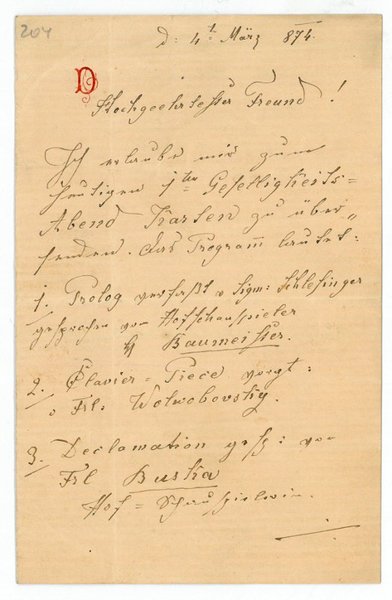 204
d: 4t März 874.
D
Hochgeehrtester Freund!
Ich erlaube mir zum
heutigen 1ten Geselligkeits=
Abend Karten zu über„
senden. Das Programm lautet:
1. Prolog verfaßt v Sigm: Schlesinger
gesprochen vom Hofschauspieler
H Baumeister.
2. Clavier=Piece vorgt:
v Frl. Wolwobovsky.
3. Declamation gesp: von
Frl Buska
Hof=Schauspielerin.